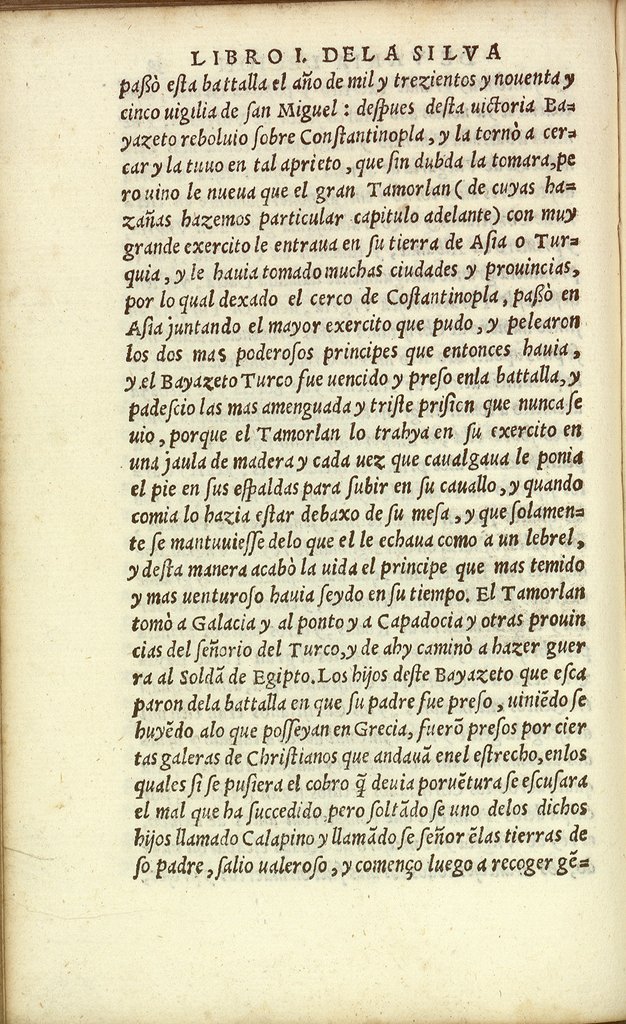 LIBRO I. DELA SILVA
paßò eſta battalla el año de mil y trezientos y nouenta y
cinco uigilia de ſan Miguel : deſpues deſta uictoria Ba=
yazeto reboluio ſobre Conſtantinopla, y la tornò a cer=
car y la tuuo en tal aprieto, que ſin dubda la tomara, pe
ro uino le nueua que el gran Tamorlan ( de cuyas ha=
zañas hazemos particular capitulo adelante) con muy
grande exercito le entraua en ſu tierra de Aſia o Tur=
quia, y le hauia tomado muchas ciudades y prouincias,
por lo qual dexado el cerco de Coſtantinopla, paßò en
Aſia juntando el mayor exercito que pudo, y pelearon
los dos mas poderoſos principes que entonces hauia,
y el Bayazeto Turco fue uencido y preſo enla battalla, y
padeſcio las mas amenguada y triſte priſicn que nunca ſe
uio, porque el Tamorlan lo trahya en ſu exercito en
una jaula de madera y cada uez que caualgaua le ponia
el pie en ſus eſpaldas para ſubir en ſu cauallo, y quando
comia lo hazia eſtar debaxo de ſu meſa, y que ſolamen=
te ſe mantuuieſſe delo que el le echaua como a un lebrel,
y deſta manera acabò la uida el principe que mas temido
y mas uenturoſo hauia ſeydo en ſu tiempo. El Tamorlan
tomò a Galacia y al ponto y a Capadocia y otras prouin
cias del ſeñorio del Turco, y de ahy caminò a hazer guer
ra al Soldā de Egipto. Los hijos deſte Bayazeto que eſca
paron dela battalla en que ſu padre fue preſo, uiniēdo ſe
huyēdo alo que poſſeyan en Grecia, fuerō preſos por cier
tas galeras de Chriſtianos que andauā enel eſtrecho, enlos
quales ſi ſe puſiera el cobro q̄ deuia poruētura ſe eſcuſara
el mal que ha ſuccedido pero ſoltādo ſe uno delos dichos
hijos llamado Calapino y llamādo ſe ſeñor ēlas tierras de
ſo padre, ſalio ualeroſo, y començo luego a recoger gē=